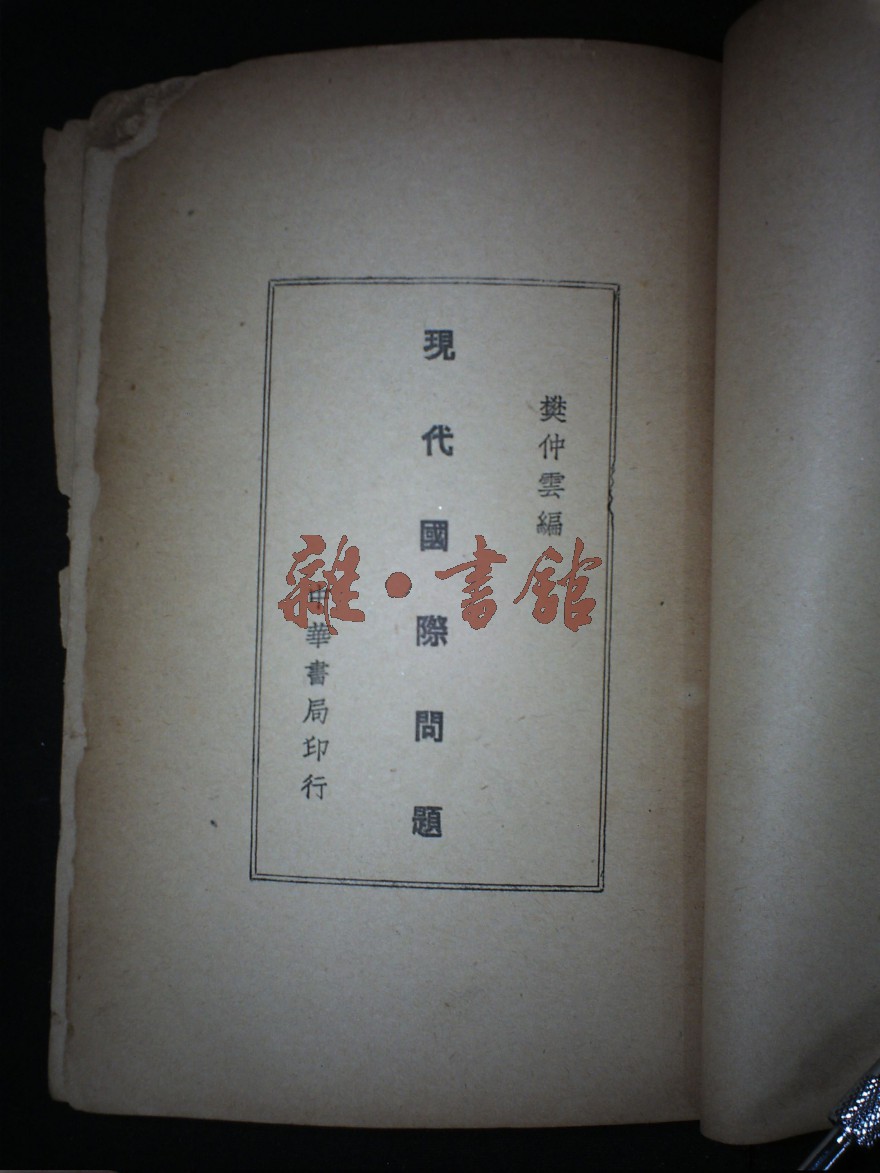 樊仲雲編
現代國際問題
中華書局印行
雜·書館